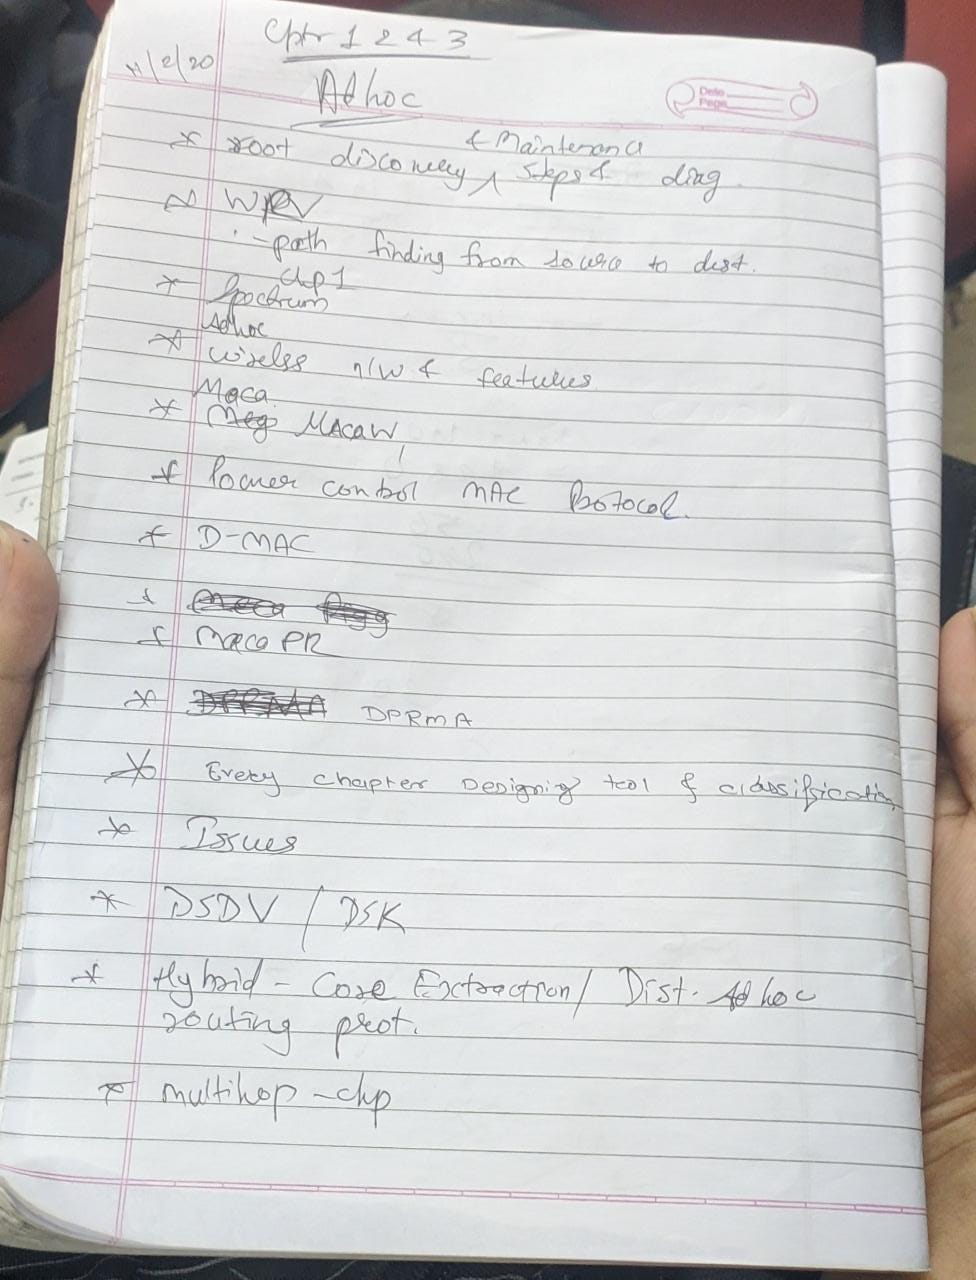 11/2/20
Cptr 1 2 & 3
Adhoc
Date
Page
& Maintenance
* root discovery ^ steps & diag.
* WRV
:- path finding from source to dest.
chp 1
* Spectrum
Adhoc
* wirelss n/w & features
Maca
* Meg MACAW,
* Power control MAC Protocol.
* D-MAC
* Maca PR
* DPRMA DPRMA
* Every chapter Designing tool & classification
* Issues
* DSDV / DSR
* Hybrid - Core Extraction / Dist. Ad hoc
routing prot.
* multihop - chp